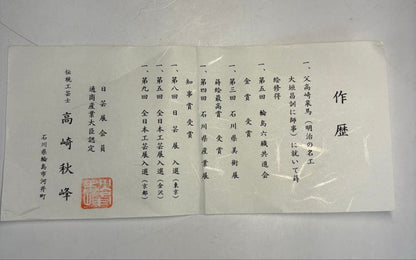 作歴
一、父高崎象馬(明治の名工
大垣昌訓に師事)に就いて蒔
絵修得
一、第五回 輪島六職共進会
金賞 受賞
一、第三回 石川県美術展
蒔絵最高賞 受賞
一、第四回 石川県産業展
知事賞 受賞
一、第八回 日芸展 入選(東京)
一、第五回 全日本工芸展入選(金沢)
一、第九回 全日本工芸展入選(京都)
日芸展会員
通商産業大臣認定
伝統工芸士 高崎秋峰
石川県輪島市河井町